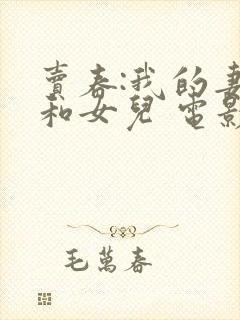 賣春:我的妻
和女兒 電影
毛萬春